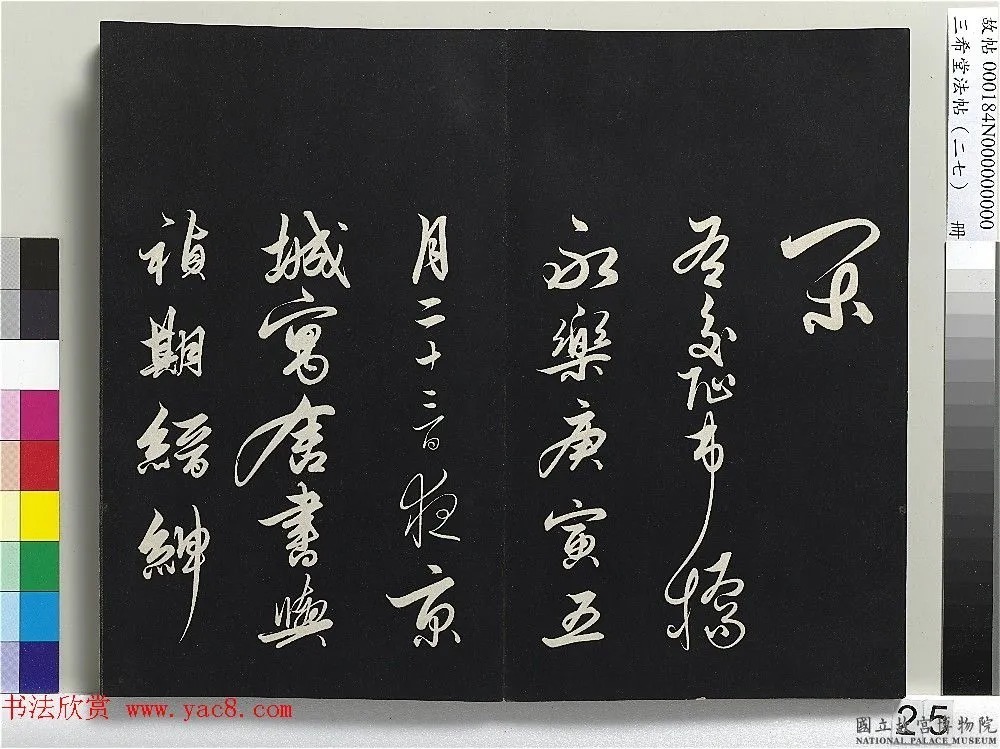 閑
右交阯市橋
永樂庚寅五
月二十三日夜京
城寓舍書與
禎期縉紳
故帖 000184N000000000
三希堂法帖（二七） 冊
25
书法欣赏 www.yac8.com
國立故宮博物院
NATIONAL PALACE MUSEUM